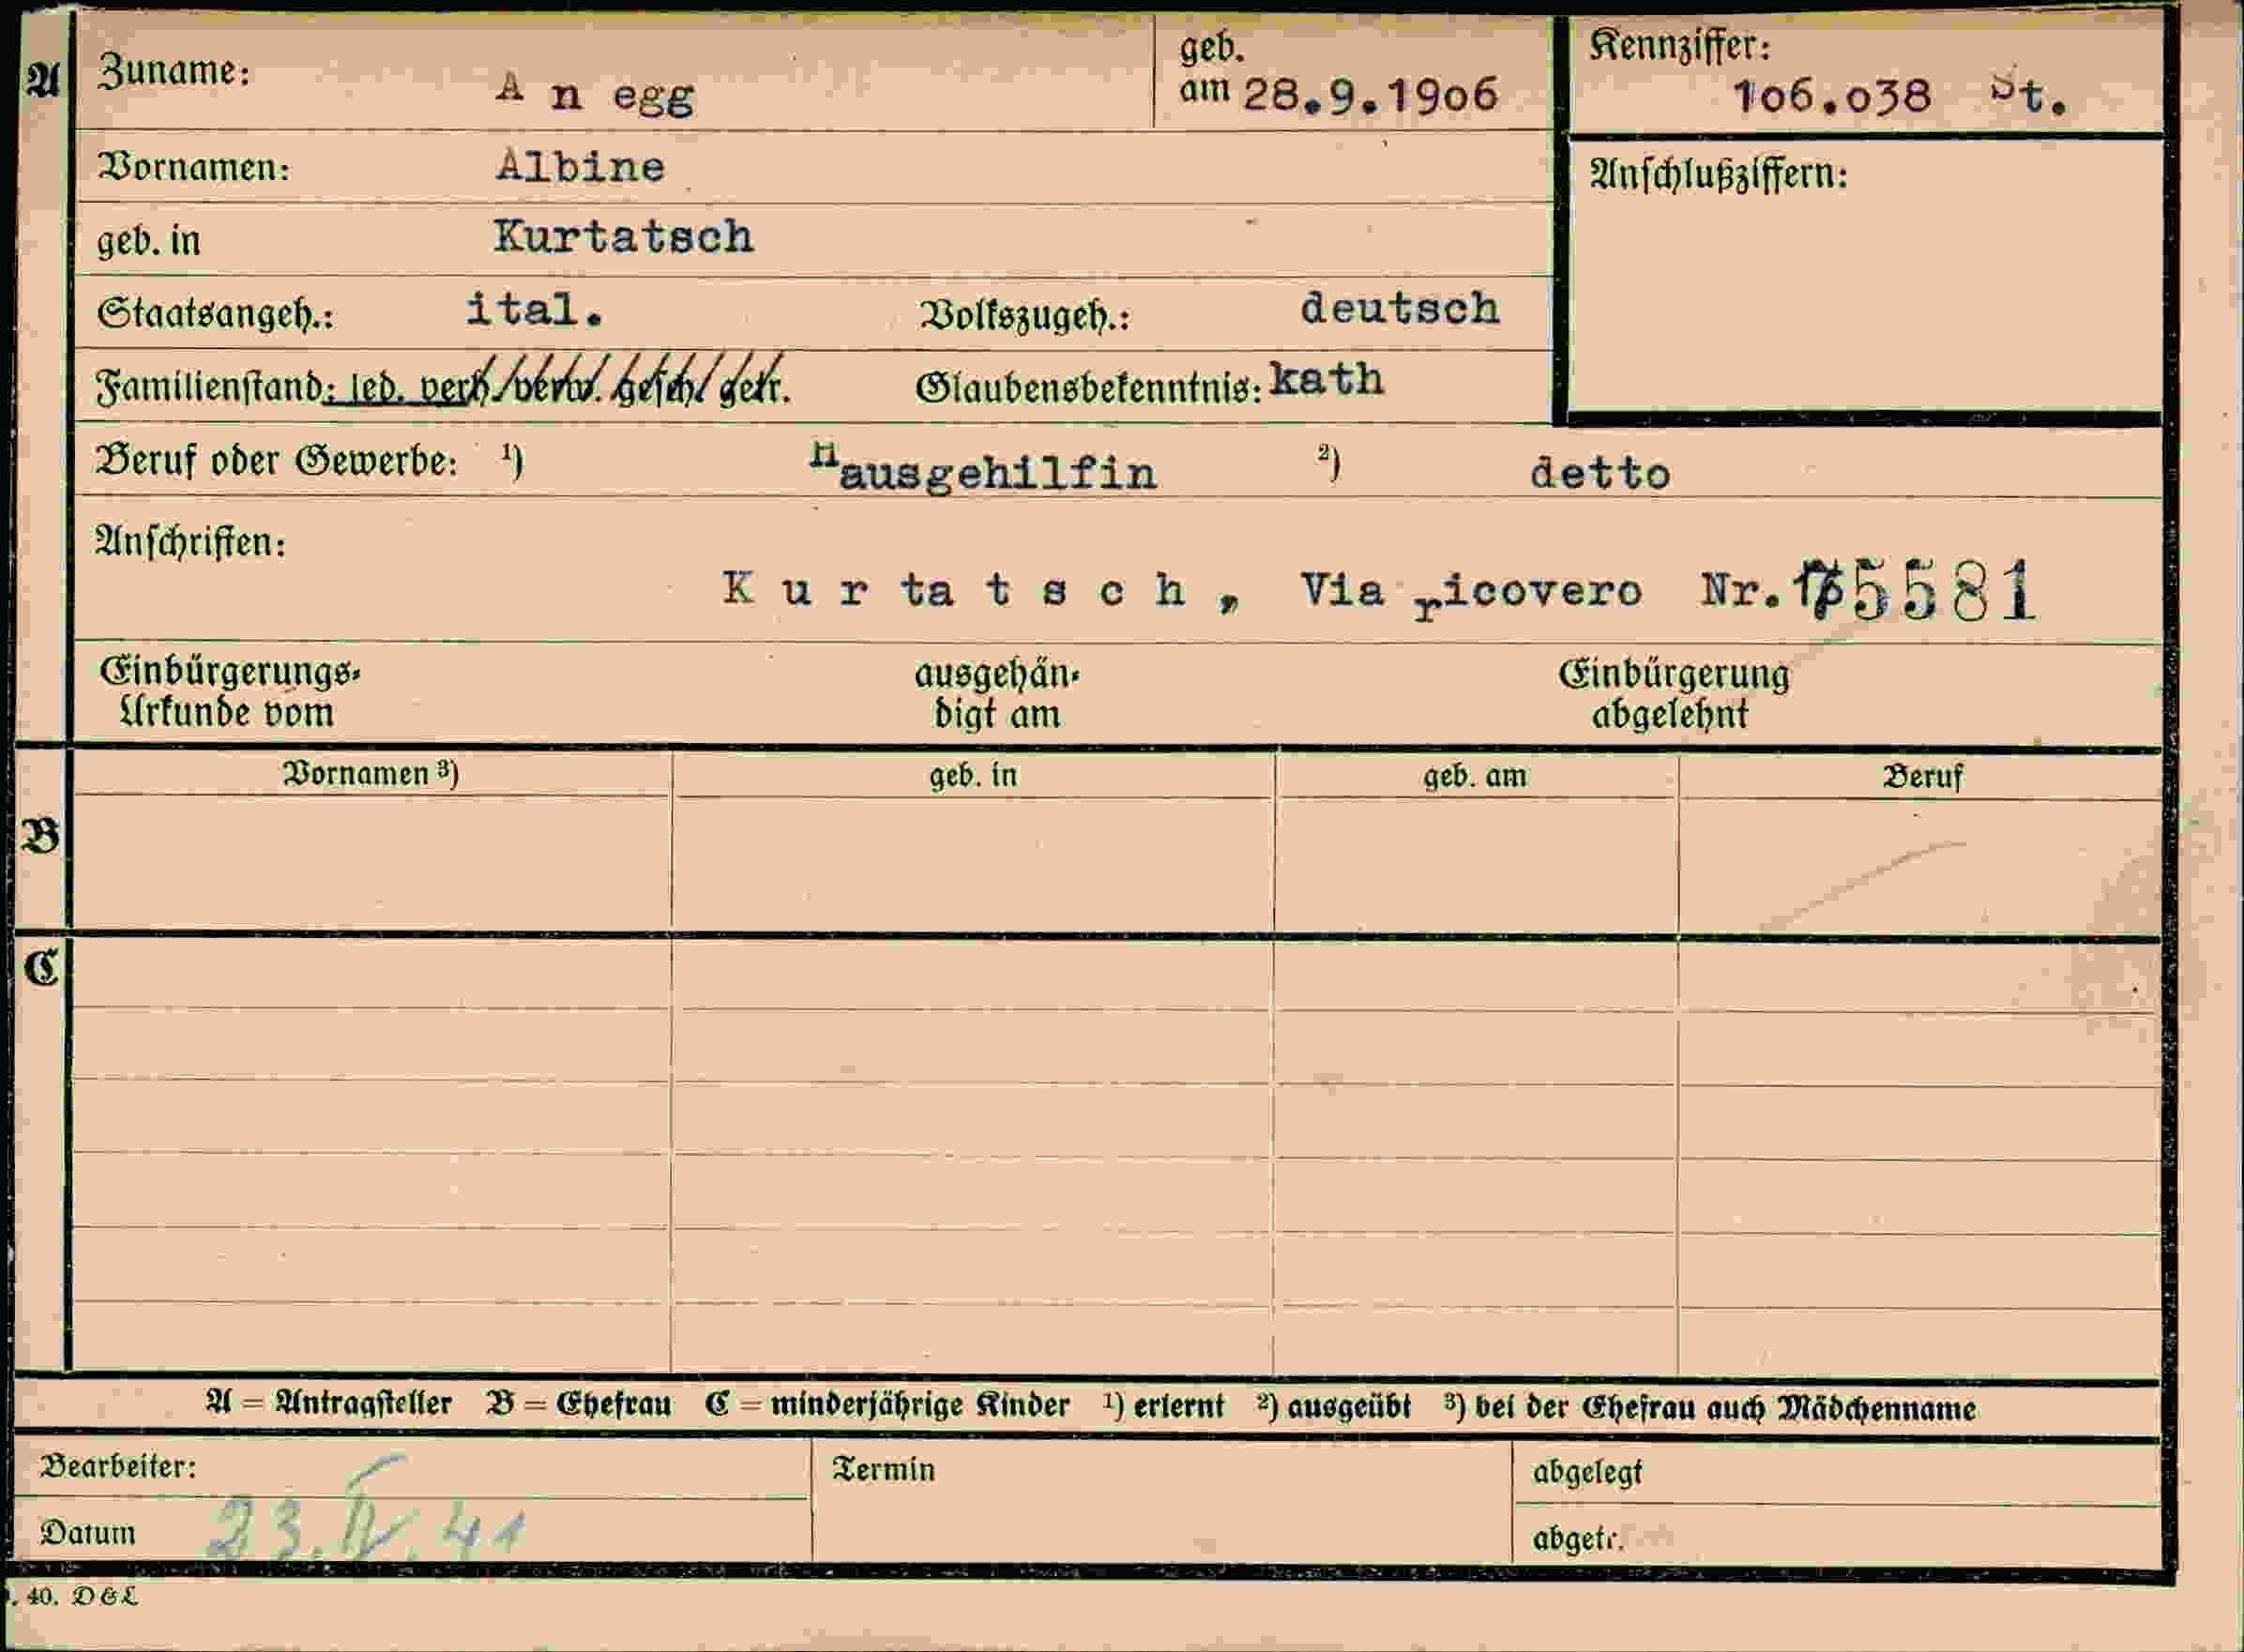 A Zuname: A n egg geb. am 28.9.1906 Kennziffer: 106.038 St.
Vornamen: Albine Anschlußziffern:
geb. in Kurtatsch
Staatsangeh.: ital. Volkszugeh.: deutsch
Familienstand: led. verh. verw. gesch. getr. Glaubensbekenntnis: kath
Beruf oder Gewerbe: ¹) Hausgehilfin ²) detto
Anschriften:
K u r ta t s c h , Via ricovero Nr. 5581
Einbürgerungs- ausgehän- Einbürgerung
Urkunde vom digt am abgelehnt
Vornamen ³) geb. in geb. am Beruf
B
C
A = Antragsteller B = Ehefrau C = minderjährige Kinder ¹) erlernt ²) ausgeübt ³) bei der Ehefrau auch Mädchenname
Bearbeiter: Termin abgelegt
Datum 23. 41 abgetr.
. 40. D&L